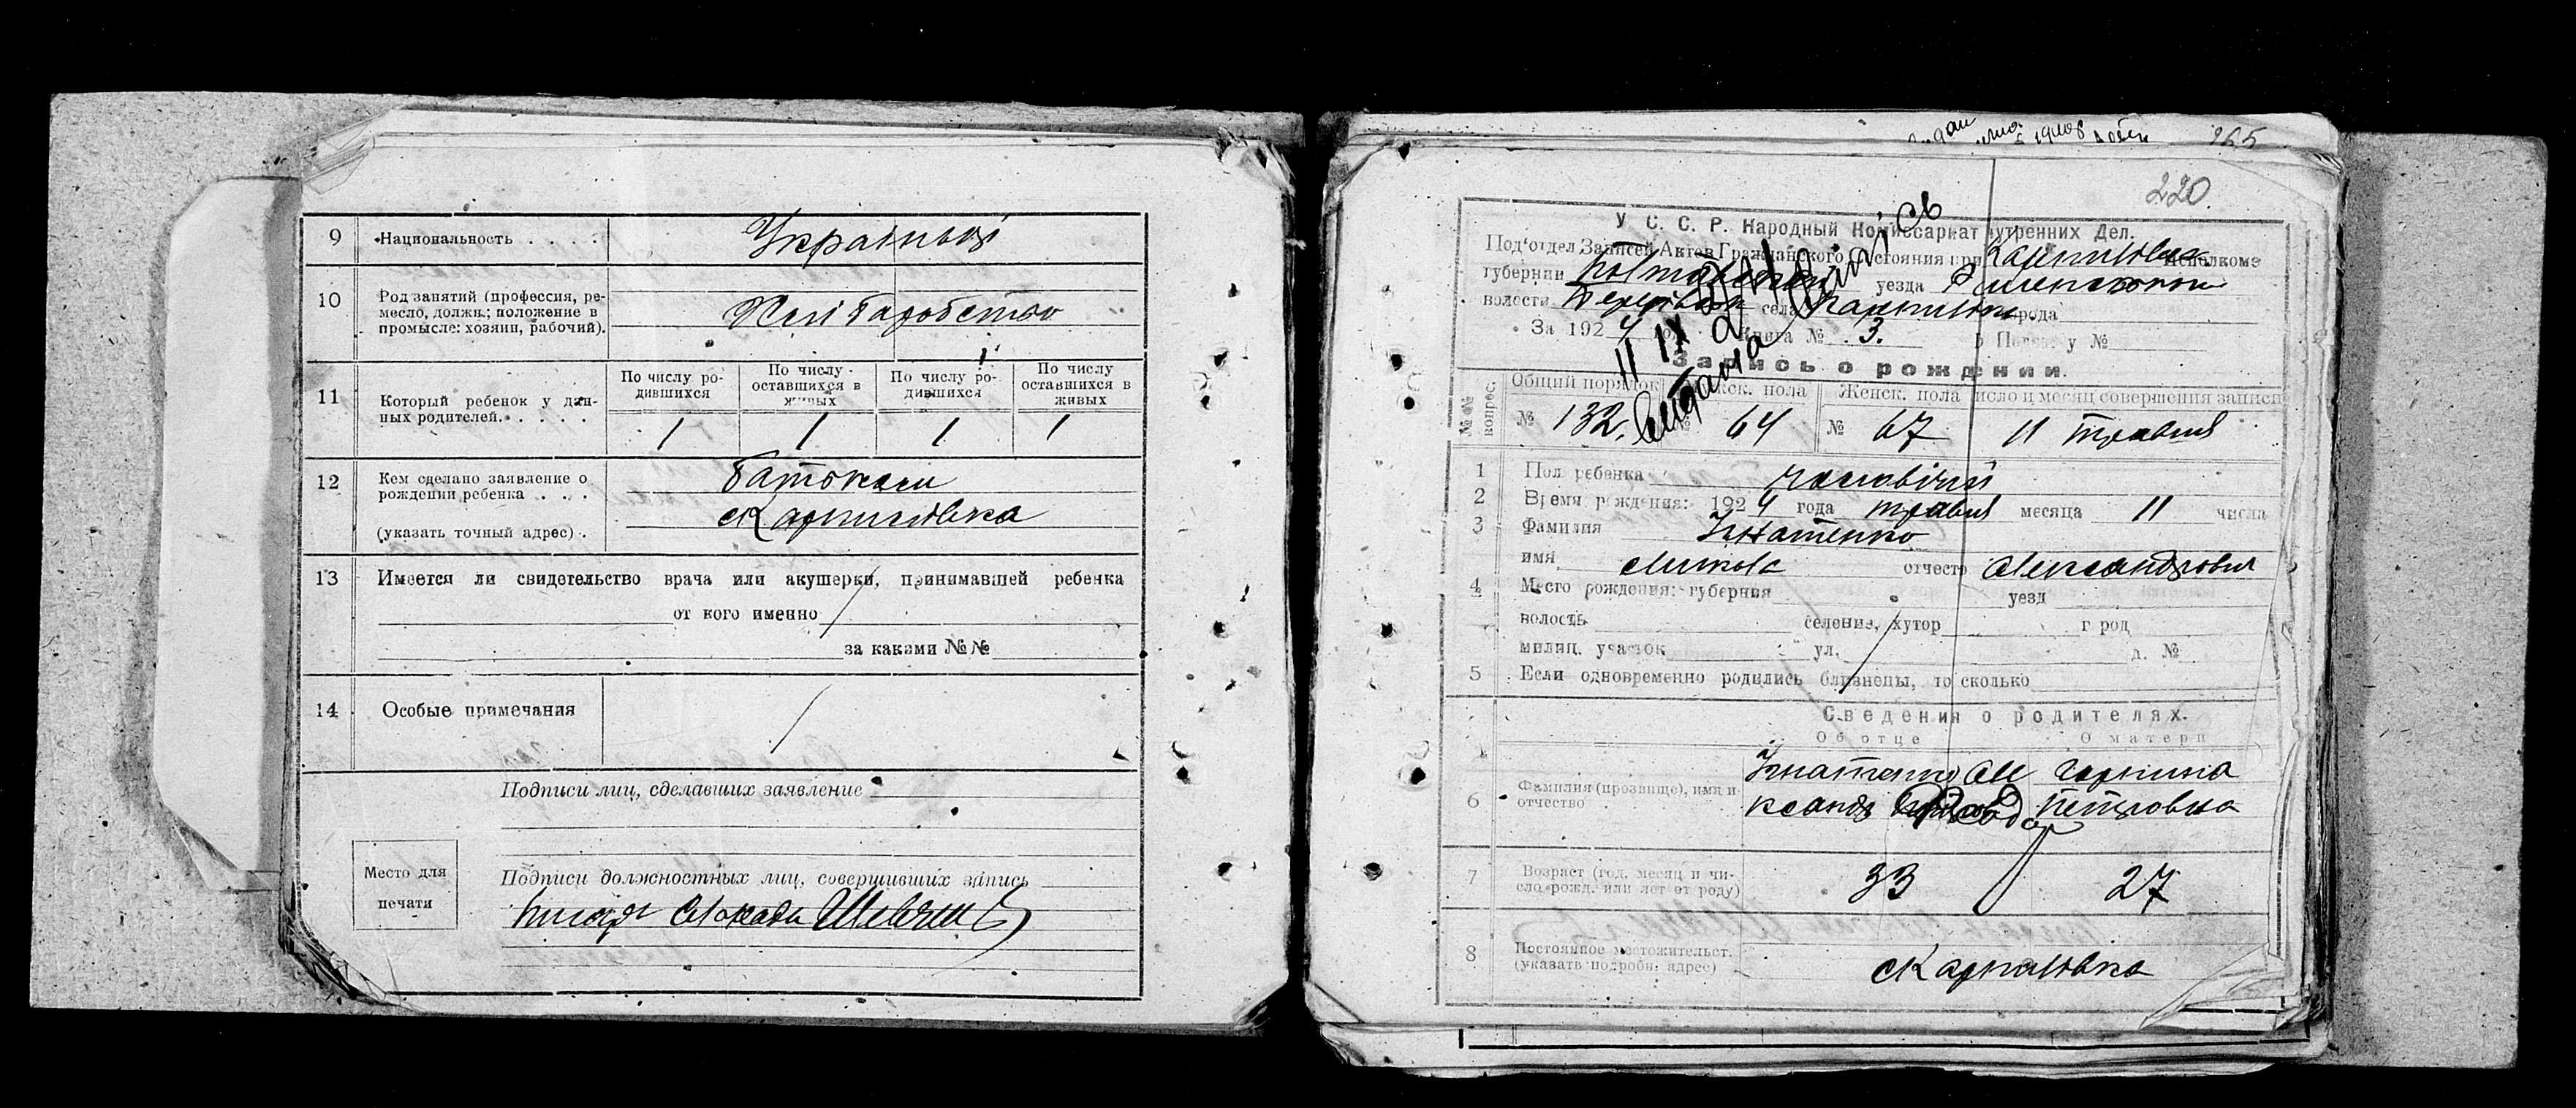 9 Национальность . . . . Українці
10 Род занятий (профессия, ре-
месло, должн.; положение в
промысле: хозяин, рабочий). Хліборобство
11 Который ребенок у дан-
ных родителей. . . . . .
По числу ро-
дившихся
По числу
оставшихся в
живых
По числу ро-
дившихся
По числу
оставшихся в
живых
1 1 1 1
12 Кем сделано заявление о
рождении ребенка . . . Батьками
(указать точный адрес) . с Карпилівка
13 Имеется ли свидетельство врача или акушерки, принимавшей ребенка
от кого именно
за какими №№
14 Особые примечания
Подписи лиц, сделавших заявление
Место для
печати
Подписи должностных лиц, совершивших запись
265
220
У С. С. Р. Народный Комиссариат Внутренних Дел.
Под'отдел Записей Актов Гражданского Состояния при Исполкоме
губернии уезда
волости села города
За 1924 Книга № 3. №
11 IX
Запись о рождении.
№№ вопрос.
Общий порядок
№ 132.
Мужск. пола
№ 64
Женск. пола
№ 67
Число и месяц совершения записи
11 травня
1 Пол ребенка чоловічий
2 Время рождения: 1924 года травня месяца 11 числа
3 Фамилия Ігнатенко
имя Микола отчество Александрович
4 Место рождения: губерния уезд
волость селение, хутор город
милиц. участок ул. д. №
5 Если одновременно родились близнецы, то сколько
Сведения о родителях.
Об отце О матери
6 Фамилия (прозвище), имя и
отчество .
Ігнатенко Але
ксандр
Горпина
Петровна
7 Возраст (год, месяц и чи-
сло рожд. или лет от роду) 33 27
8 Постоянное местожительст.
(указать подробн. адрес) с Карпилівка